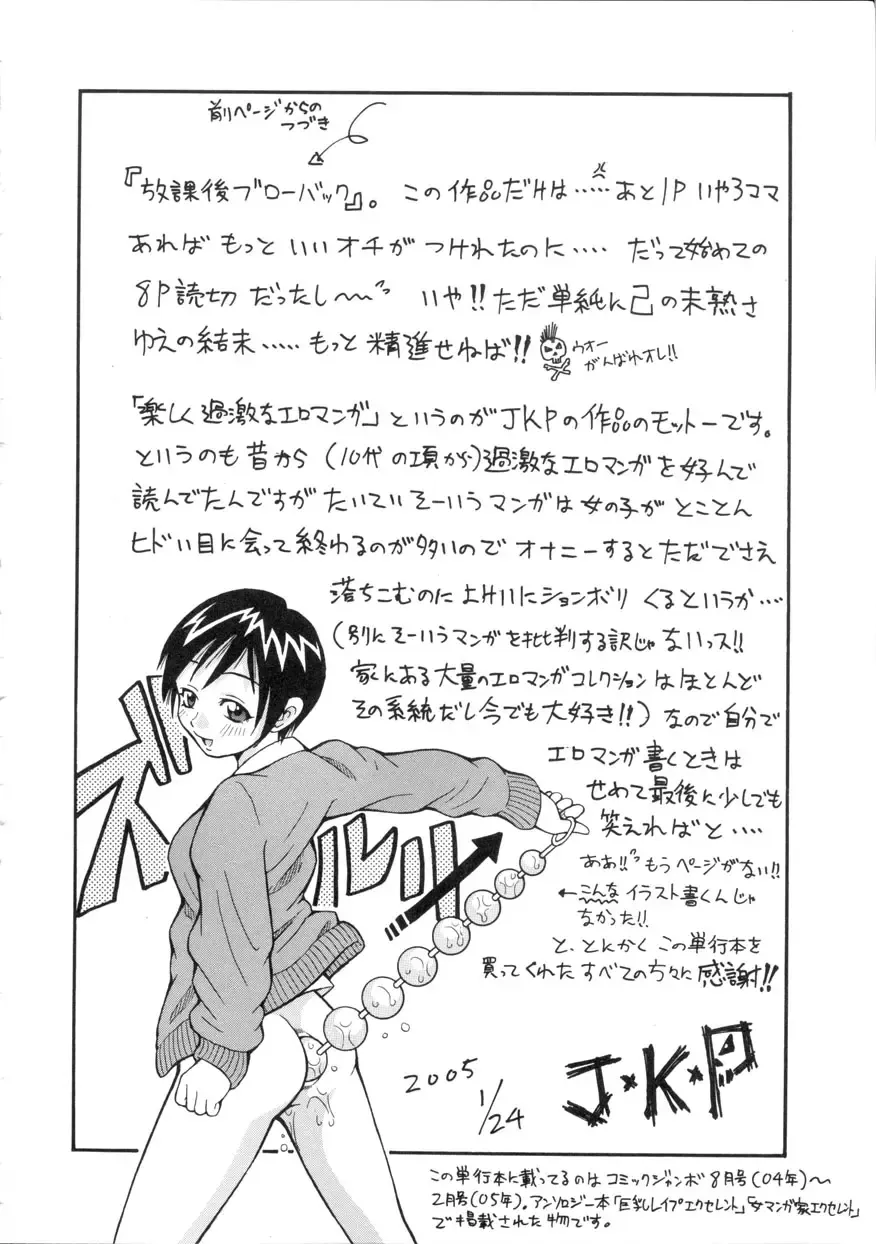 前ページからの
つづき
『放課後ブローバック』。この作品だけは……あと1P いやろコママ
あれば もっと いい オチが つけれたのに…… だって始めての
8P読切 だったし〜〜 いや!! ただ 単純に 己の未熟さ
ゆえの結末…… もっと 精進せねば!!
ウオー
がんばれオレ!!
「楽しく過激なエロマンガ」というのがJKPの作品のモットーです。
というのも昔から (10代の項から)過激なエロマンガを好んで
読んでたんですが たいていそーいうマンガは女の子が とことん
ヒドい目に会って終わるのが多いので オナニーするとただでさえ
落ちこむのに よけいにションボリ くるというか…
(別にそーいうマンガを批判する訳じゃないっス!!
家にある大量のエロマンガコレクションはほとんど
その系統だし今でも大好き!!) なので自分で
エロマンガ書くときは
せめて最後に少しでも
笑えればと……
ああ!! もうページがない!!
←こんな イラスト書くんじゃ
なかった!!
と、とにかく この単行本を
買ってくれた すべての方々に 感謝!!
ズルルリ
2005
1/24
J・K・P
この単行本に載ってるのは コミックジャンボ 8月号(04年)〜
2月号(05年)。アンソロジー本「巨乳レイプエクセレント」「女マンガ家エクセレント」
で掲載された物です。